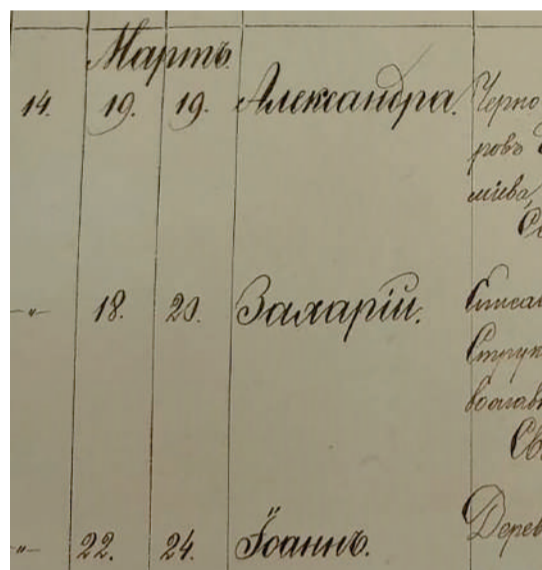 Мартъ.
14. 19. 19. Александра. Черно
ровъ
міева,
–"– 18. 20. Захарій.
–"– 22. 24. Іоаннъ. Дерев